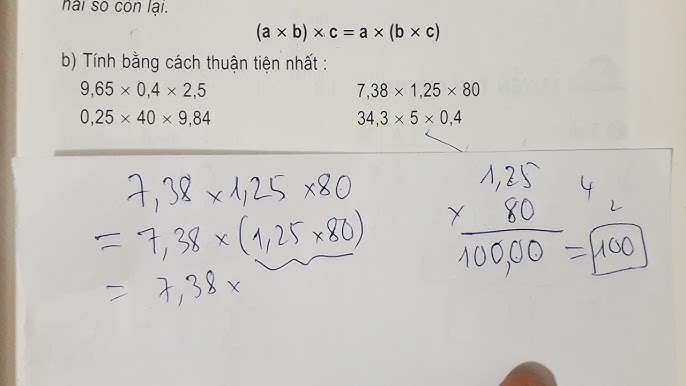 hai số còn lại.
(a × b) × c = a × (b × c)
b) Tính bằng cách thuận tiện nhất :
9,65 × 0,4 × 2,5 7,38 × 1,25 × 80
0,25 × 40 × 9,84 34,3 × 5 × 0,4
7,38 × 1,25 × 80
= 7,38 × (1,25 × 80)
= 7,38 ×
1,25
× 80
100,00 = 100
4
2